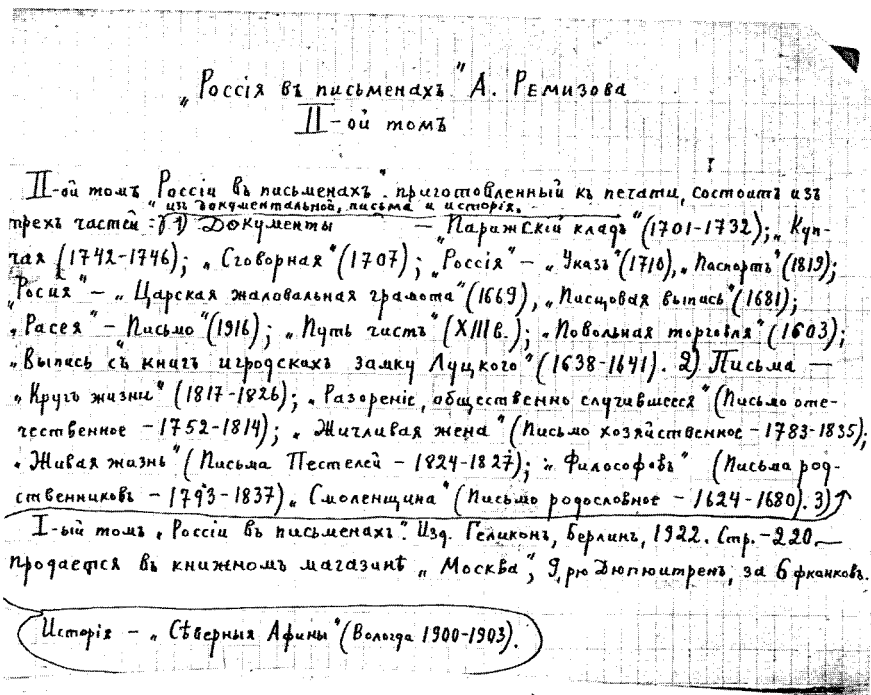 „Россія въ письменахъ" А. Ремизова
II-ой томъ
II-ой томъ „Россіи въ письменахъ", приготовленный къ печати, состоитъ изъ
изъ документальной, письма и исторія.
трехъ частей: 1) Документы — „Парижскій кладъ" (1701-1732); „Куп-
чая" (1742-1746); „Сговорная" (1707); „Россія" – „Указъ" (1710), „Паспортъ" (1819);
„Росия" – „Царская жаловальная грамота" (1669), „Писцовая выпись" (1681);
„Расея" – „Письмо" (1916); „Путь чистъ" (XIII в.); „Повольная торговля" (1603);
„Выпись съ книгъ игродскахъ замку Луцкого" (1638-1641). 2) Письма —
„Кругъ жизни" (1817-1826); „Разореніе, общественно случившееся" (Письмо оте-
чественное – 1752-1814); „Жичливая жена" (Письмо хозяйственное – 1783-1835);
„Живая жизнь" (Письма Пестелей – 1824-1827); „Философовъ" (Письма род-
ственниковъ – 1793-1837), „Смоленщина" (Письмо родословное – 1624-1680). 3)
I-ый томъ „Россіи въ письменахъ". Изд. Геликонъ, Берлинъ, 1922. Стр. – 220 —
продается въ книжномъ магазинѣ „Москва", 9, рю Дюпюитренъ, за 6 франковъ.
Исторія – „Сѣверныя Афины" (Вологда 1900-1903).